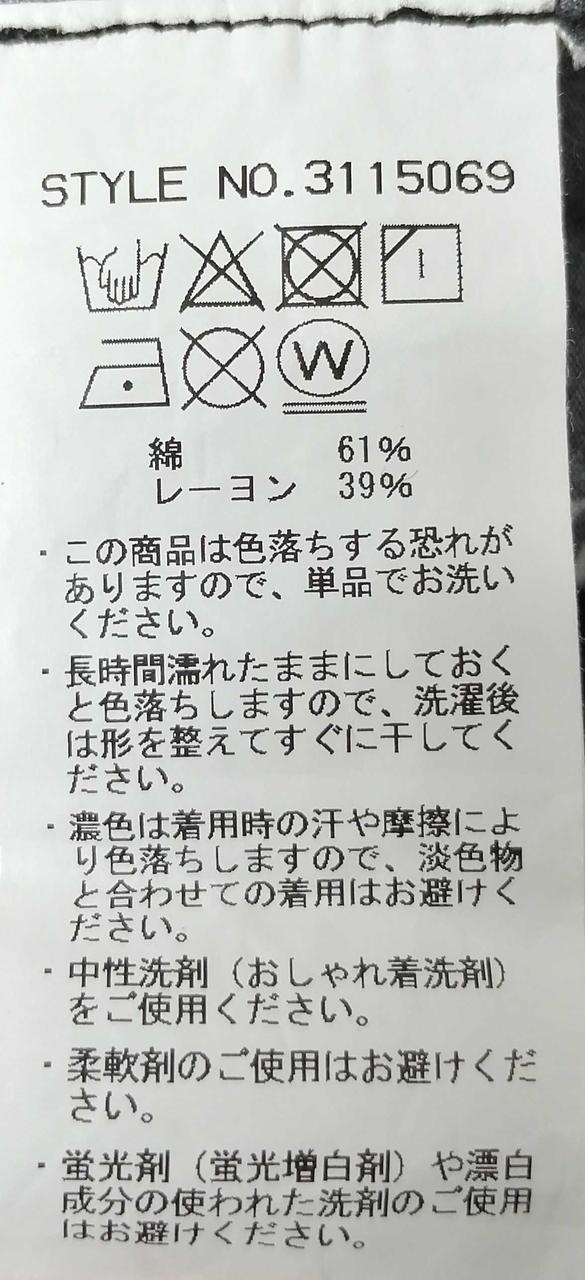 STYLE NO.3115069
W
綿 61%
レーヨン 39%
・この商品は色落ちする恐れが
ありますので、単品でお洗い
ください。
・長時間濡れたままにしておく
と色落ちしますので、洗濯後
は形を整えてすぐに干してく
ださい。
・濃色は着用時の汗や摩擦によ
り色落ちしますので、淡色物
と合わせての着用はお避けく
ださい。
・中性洗剤（おしゃれ着洗剤）
をご使用ください。
・柔軟剤のご使用はお避けくだ
さい。
・蛍光剤（蛍光増白剤）や漂白
成分の使われた洗剤のご使用
はお避けください。